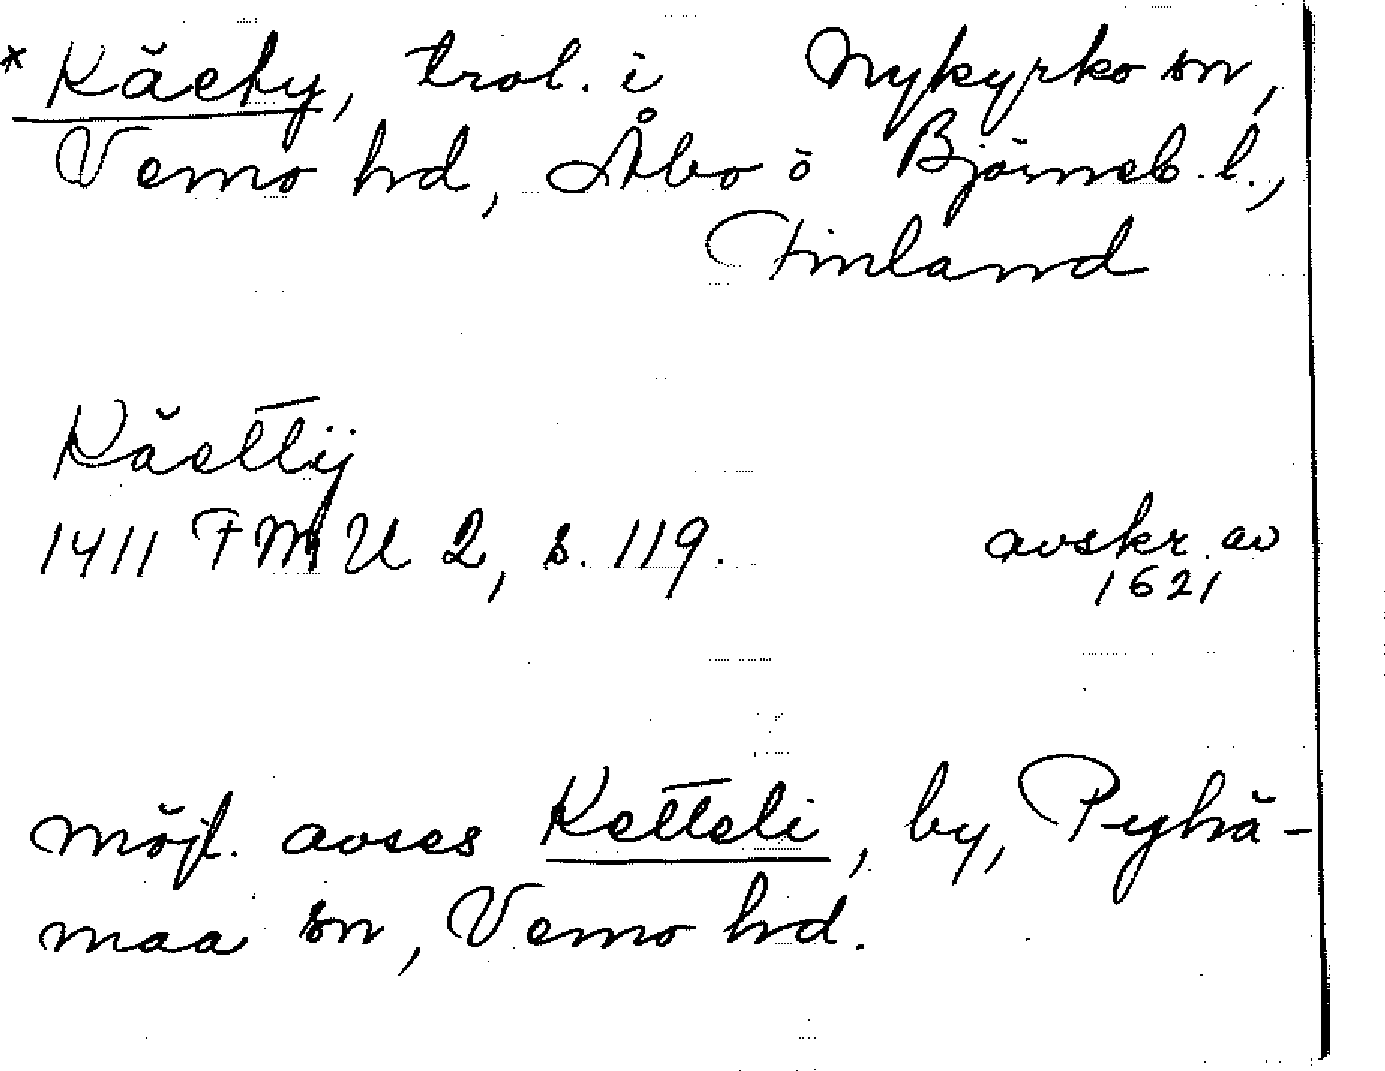 * Käety, trol. i Nykyrko sn,
Vemo hd, Åbo o Björneb. l.,
Finland
Käettÿ
1411 FMU 2, s. 119.
avskr. av
1621
möjl. avses Ketteli, by, Pyhä-
maa sn, Vemo hd.